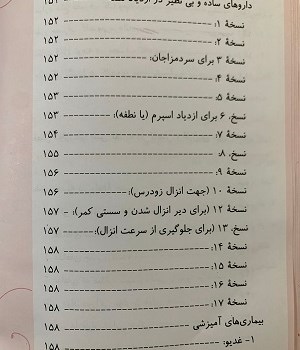 داروهای ساده و بی نظیر در ازدیاد ۱۵۱
نسخهٔ ۱: ۱۵۲
نسخهٔ ۲: ۱۵۲
نسخهٔ ۳ برای سردمزاجان: ۱۵۲
نسخهٔ ۴: ۱۵۲
نسخهٔ ۵: ۱۵۳
نسخ، ۶ برای ازدیاد اسپرم (یا نطفه): ۱۵۳
نسخهٔ ۷: ۱۵۴
نسخ، ۸: ۱۵۵
نسخهٔ ۹: ۱۵۶
نسخهٔ ۱۰ (جهت انزال زودرس): ۱۵۶
نسخهٔ ۱۲ (برای دیر انزال شدن و سستی کمر): - ۱۵۷
نسخ، ۱۳ (برای جلوگیری از سرعت انزال): ۱۵۷
نسخهٔ ۱۴: ۱۵۸
نسخهٔ ۱۵: ۱۵۸
نسخهٔ ۱۶: ۱۵۸
نسخهٔ ۱۷: ۱۵۸
بیماری‌های آمیزشی ۱۵۸
۱- غدیو: ۱۵۸